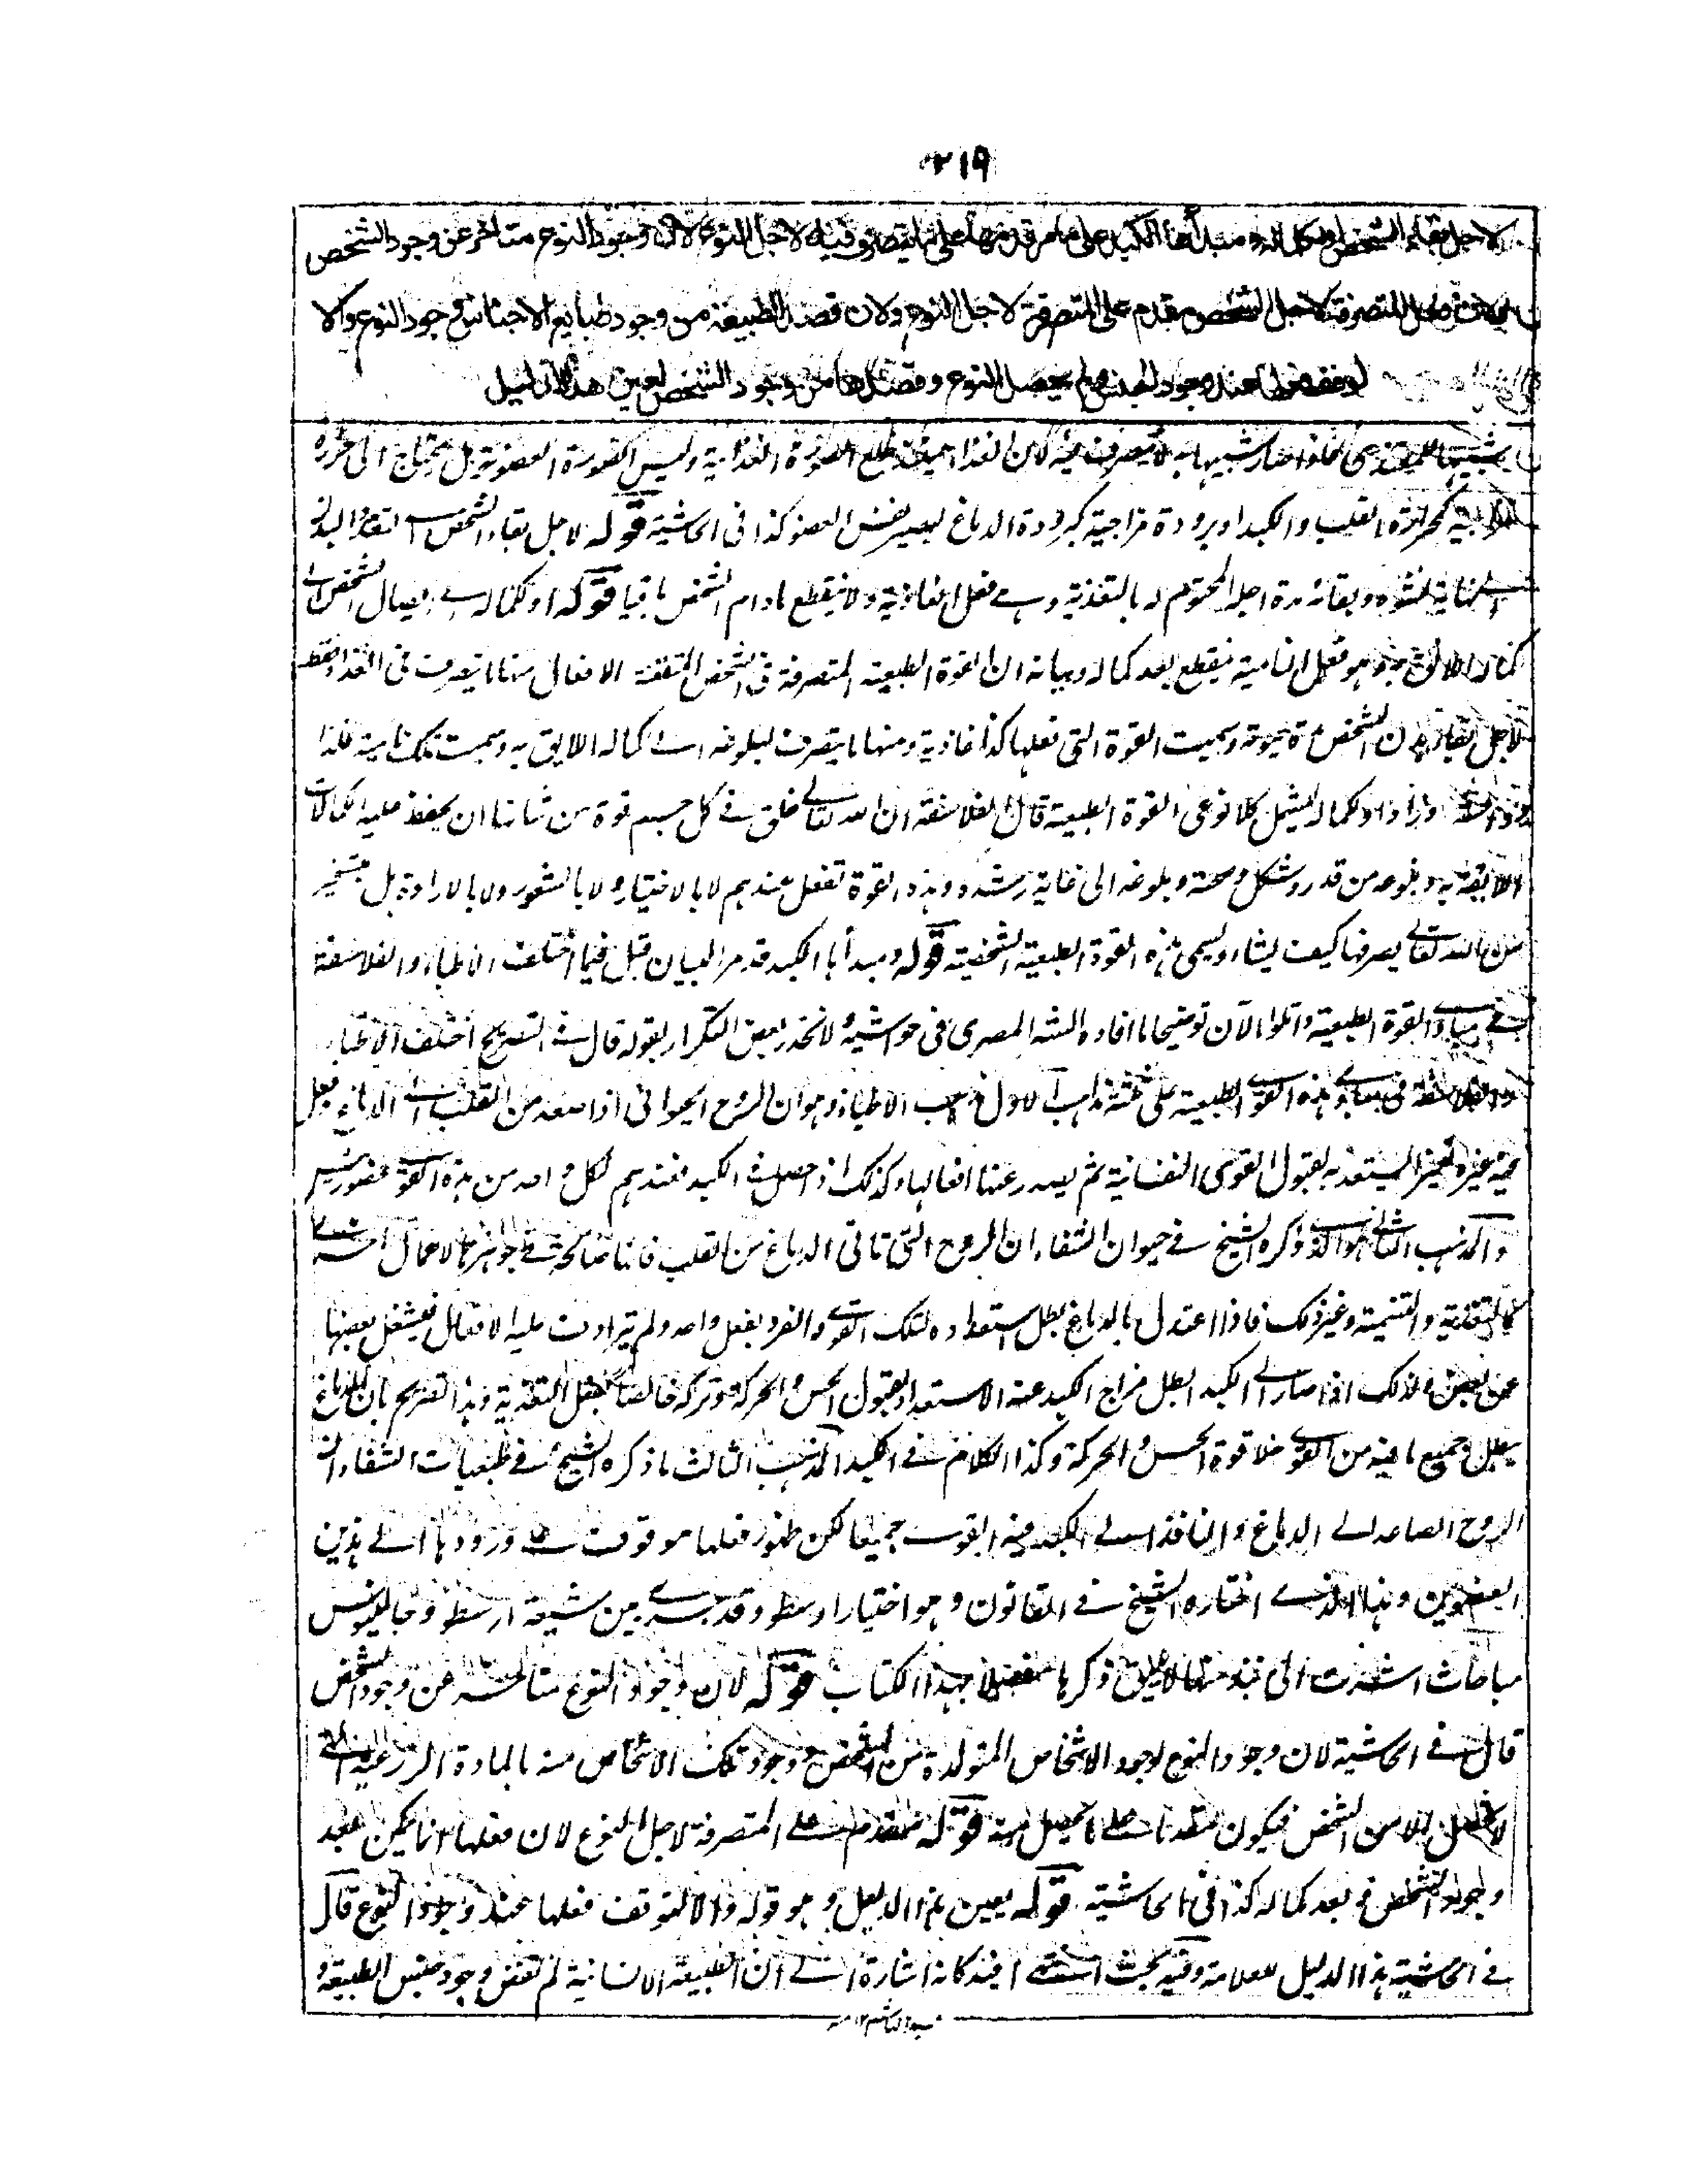 ٢١٩
لاجل بقاء الشخص او كماله ومبدأها الكبد على ما مر قدمها على ما يتصرف فيه لاجل النوع لان وجود النوع متاخر عن وجود الشخص
المتصرفة لاجل الشخص مقدم على المتصرفة لاجل النوع ولان قصد الطبيعة من وجود طبايع الاجناس وجود النوع والا
لوقف فعلها عند وجود الجنس ولم يحصل النوع وقصدها من وجود الشخص لعين هذا الدليل
صار شبيها به لا يتصرف فيه لان الغذاء يخلع الصورة الغذائية وليس الصورة العضوية بل يحتاج الى
كحرارة القلب والكبد او برودة مزاجية كبرودة الدماغ ليصير نفس العضو كذا فى الحاشية قوله لاجل بقاء الشخص
وبقائه مدة اجله المحتوم له بالتغذية وهي فعل الغاذية ولا ينقطع مادام الشخص باقيا قوله او كماله اي ايصال الشخص الى
كماله اللائق به وهو فعل النامية ينقطع بعد كماله وبيانه ان القوة الطبيعية المتصرفة فى الشخص الافعال منها ما يتصرف فى الغذاء فقط
لاجل بقاء بدن الشخص مدة حيوته وسميت القوة التى فعلها كذا غاذية ومنها ما يتصرف لبلوغه الى كماله اللايق به وسميت تلك نامية فلذا
وزاد او لكماله ليشمل كلا نوعى القوة الطبيعية قال الفلاسفة ان الله تعالى خلق فے كل جسم قوة من شانها ان يحفظ عليه الكمالات
اللايقة به وبنوعه من قدر وشكل وصحة وبلوغه الى غاية رشده وهذه القوة تفعل عندهم لا بالاختيار ولا بالشعور ولا بالارادة بل بتسخير
من الله تعالى يصرفها كيف يشاء ويسمى هذه القوة الطبيعية الشخصية قوله ومبدأها الكبد قد مر البيان قبل فيما اختلف الاطباء والفلاسفة
فے مبادى القوة الطبيعية واتلوا الآن توضيحا ما افاده المصرى فى حواشيه لا نحذر بعض التكرار بقوله قال فى التصريح اختلف الاطباء
والفلاسفة فى مبادى هذه القوى الطبيعية على ثلثة مذاهب الاول مذهب الاطباء وهو ان الروح الحيوانى اذا صعد من القلب الى الدماغ فعل
فيه غيره تغيرا يستعد به لقبول القوى النفسانية ثم يصدر عنها افعالها وكذلك اذا حصل فى الكبد فعندهم لكل واحد من هذه القوى عضو رئيس
والمذهب الثانى هو الذى ذكره الشيخ فے حيوان الشفاء ان الروح التى تاتى الدماغ من القلب فانها صالحة فے جوهرها لاعمال اخرى
كالتغذية والتنمية وغير ذلك فاذا اعتدل بالدماغ بطل استعداده لتلك القوى وانفرد بفعل واحد ولم تترادف عليه الافعال فيشغل بعضها
عن بعض وكذلك اذا صار الى الكبد ابطل مزاج الكبد عنه الاستعداد لقبول الحس والحركة وتركه خالصا لفعل التغذية وهذا تصريح بان الدماغ
يبطل جميع ما فيه من القوى خلا قوة الحس والحركة وكذا الكلام فے الكبد المذهب الثالث ما ذكره الشيخ فے طبعيات الشفاء ان
الروح الصاعد الى الدماغ والنافذ الى الكبد فيه القوى جميعا لكن ظهور فعلها موقوف على ورودها الى هذين
العضوين وهذا الذى اختاره الشيخ فے القانون وهو اختيار ارسطو وقد جرى بين شيعة ارسطو وجالينوس
مباحث اشرت الى نبذ منها لا يليق ذكرها مفصلا بهذا الكتاب قوله لان وجود النوع متاخر عن وجود الشخص
قال فے الحاشية لان وجود النوع لوجود الاشخاص المتولدة من الشخص ووجود تلك الاشخاص منه بالمادة الزرعية التى
لا تحصل الا من الشخص فيكون متقدما على ما يحصل منه قوله متقدم على المتصرفة لاجل النوع لان فعلها انما يمكن عند
وجود الشخص وبعد كماله كذا فى الحاشية قوله بعين هذا الدليل وهو قوله والا لتوقف فعلها عند وجود النوع قال
فے الحاشية هذا الدليل للعلامة وفيه بحث انتهى اقول كانه اشارة الى ان الطبيعة الانسانية لم تقتض وجود جنس الطبيعة و